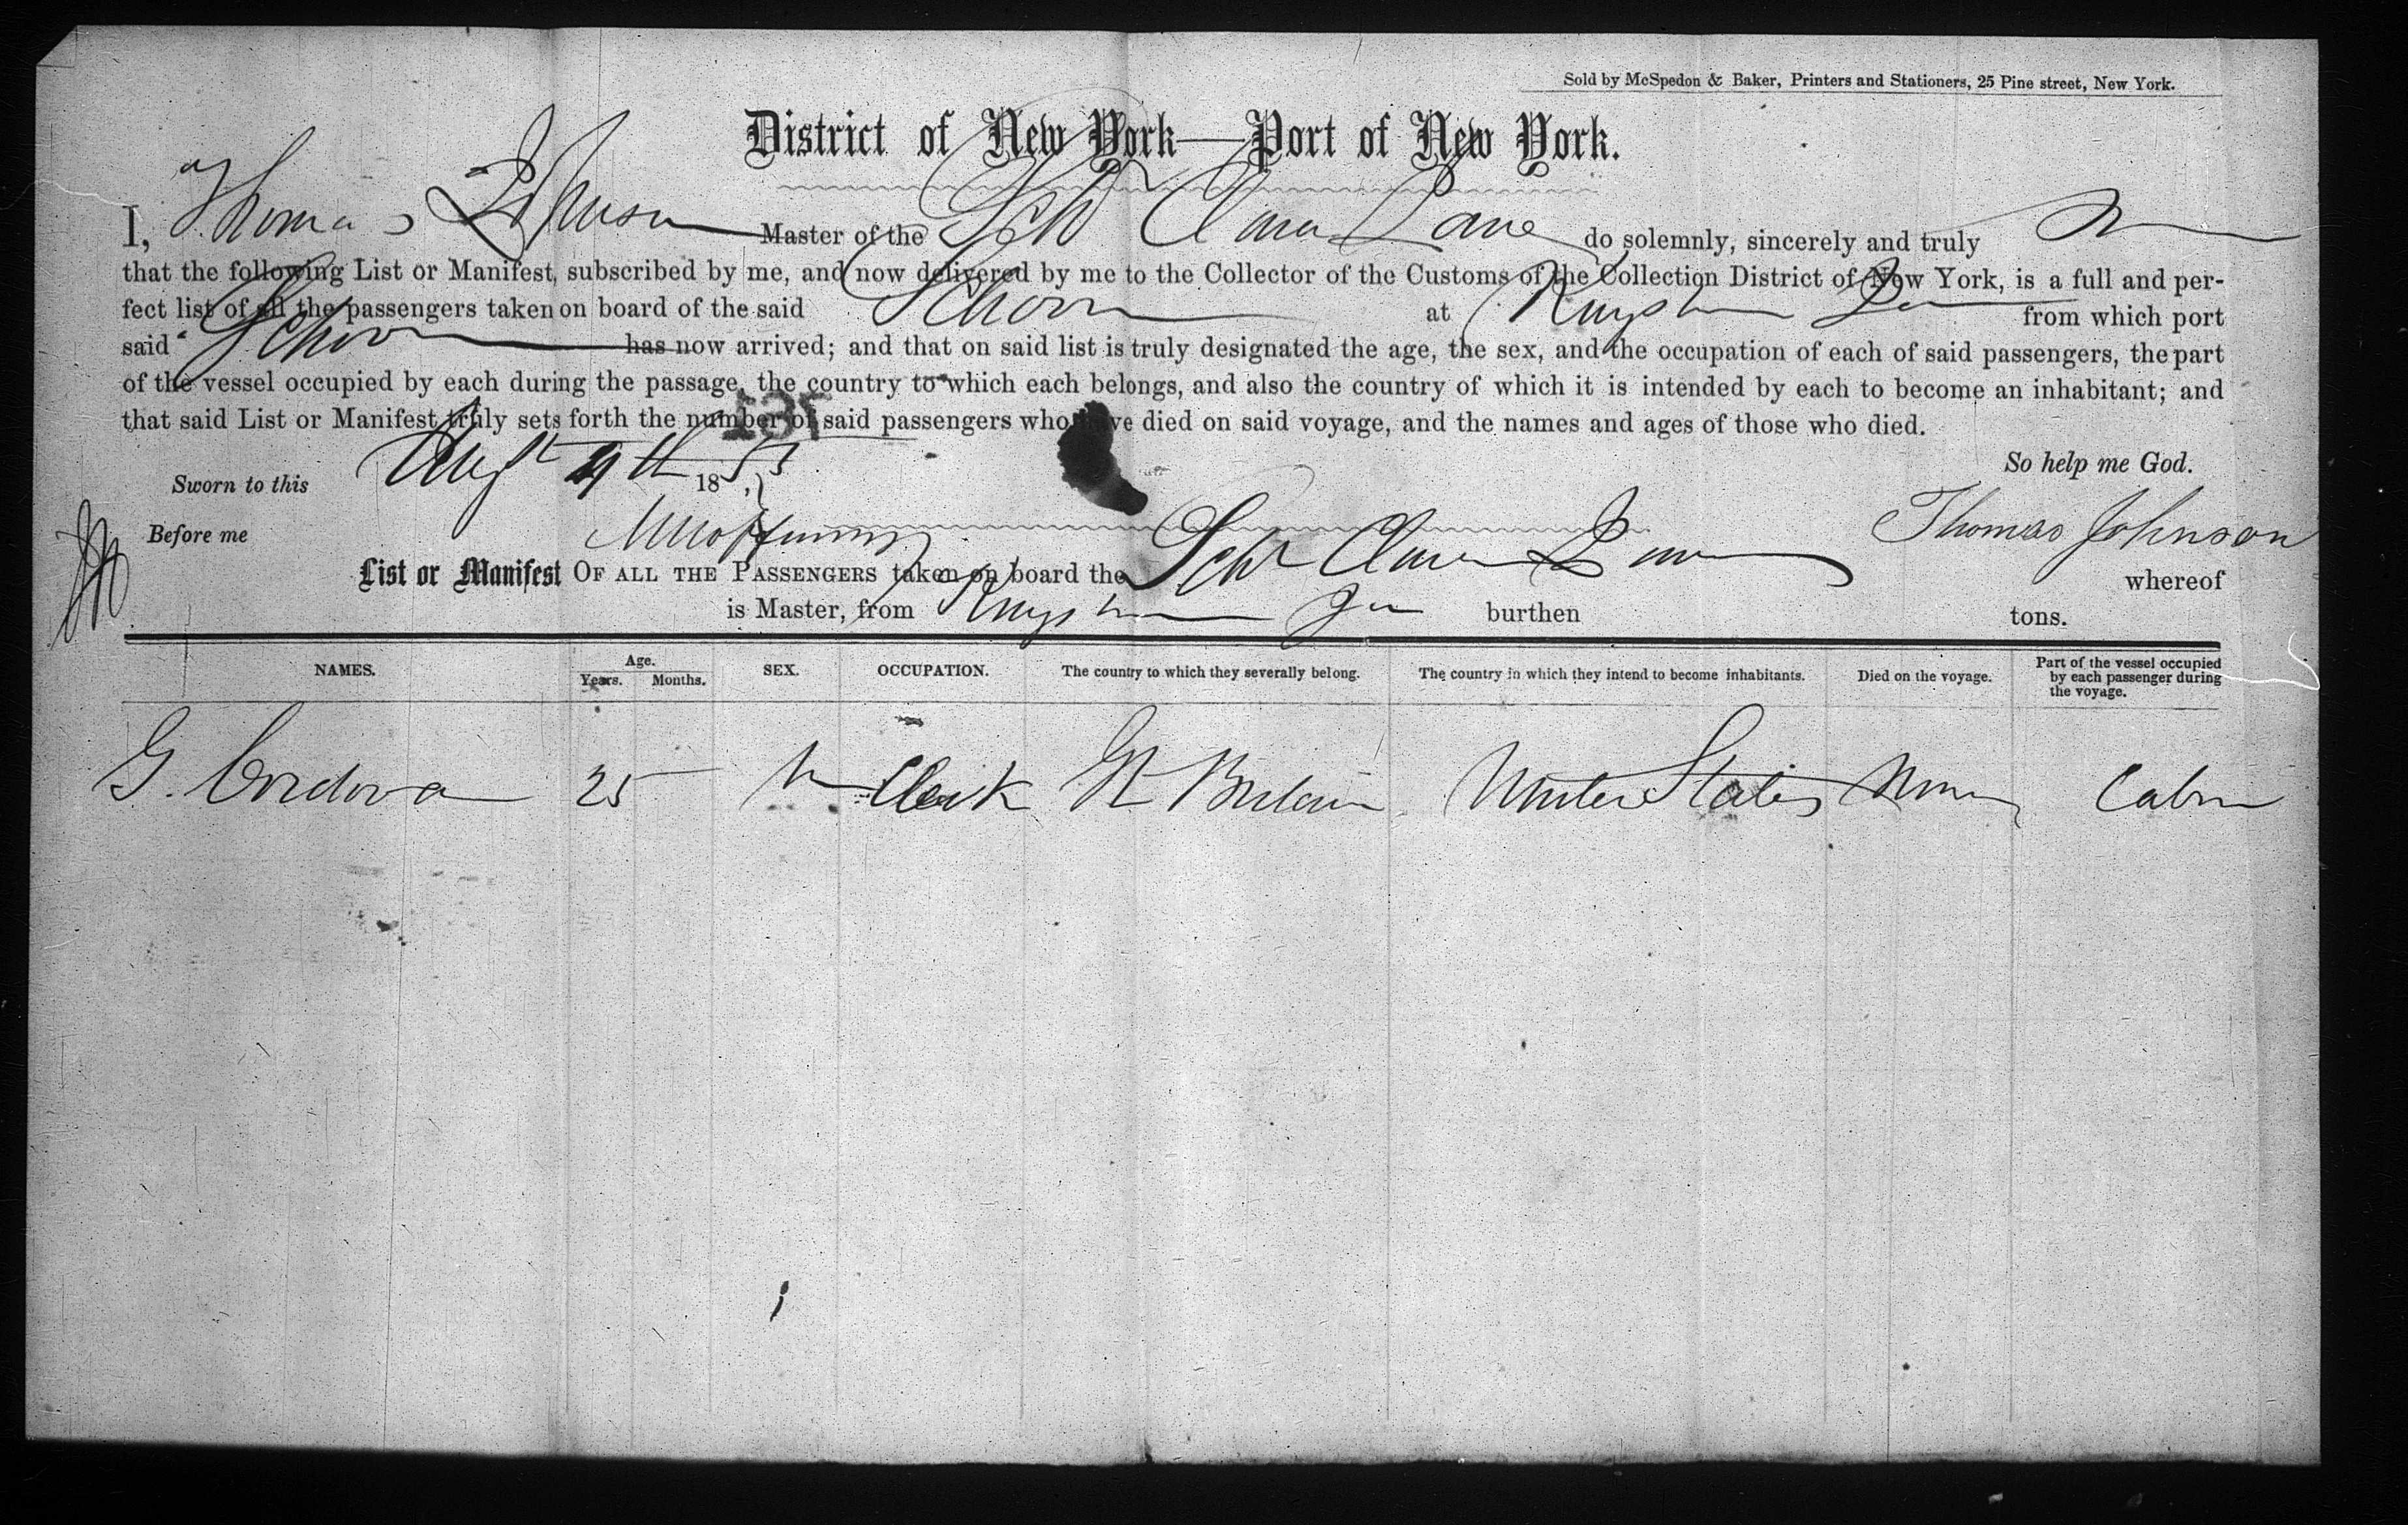 Sold by McSpedon & Baker, Printers and Stationers, 25 Pine street, New York.
District of New York—Port of New York.
I, Thomas Johnson Master of the Schr Clara Lane do solemnly, sincerely and truly
that the following List or Manifest, subscribed by me, and now delivered by me to the Collector of the Customs of the Collection District of New York, is a full and per-
fect list of all the passengers taken on board of the said Schoon at Kingston Ja from which port
said Schoon has now arrived; and that on said list is truly designated the age, the sex, and the occupation of each of said passengers, the part
of the vessel occupied by each during the passage, the country to which each belongs, and also the country of which it is intended by each to become an inhabitant; and
that said List or Manifest truly sets forth the number of said passengers who have died on said voyage, and the names and ages of those who died.
So help me God.
Sworn to this Augt 9th 18
Before me Thomas Johnson
List or Manifest OF ALL THE PASSENGERS taken on board the Schr whereof
is Master, from Kingston Ja burthen tons.
NAMES. Age. Years. Months. SEX. OCCUPATION. The country to which they severally belong. The country in which they intend to become inhabitants. Died on the voyage. Part of the vessel occupied by each passenger during the voyage.
G. Cordova 25 M Clerk Gt Britain United States None Cabin